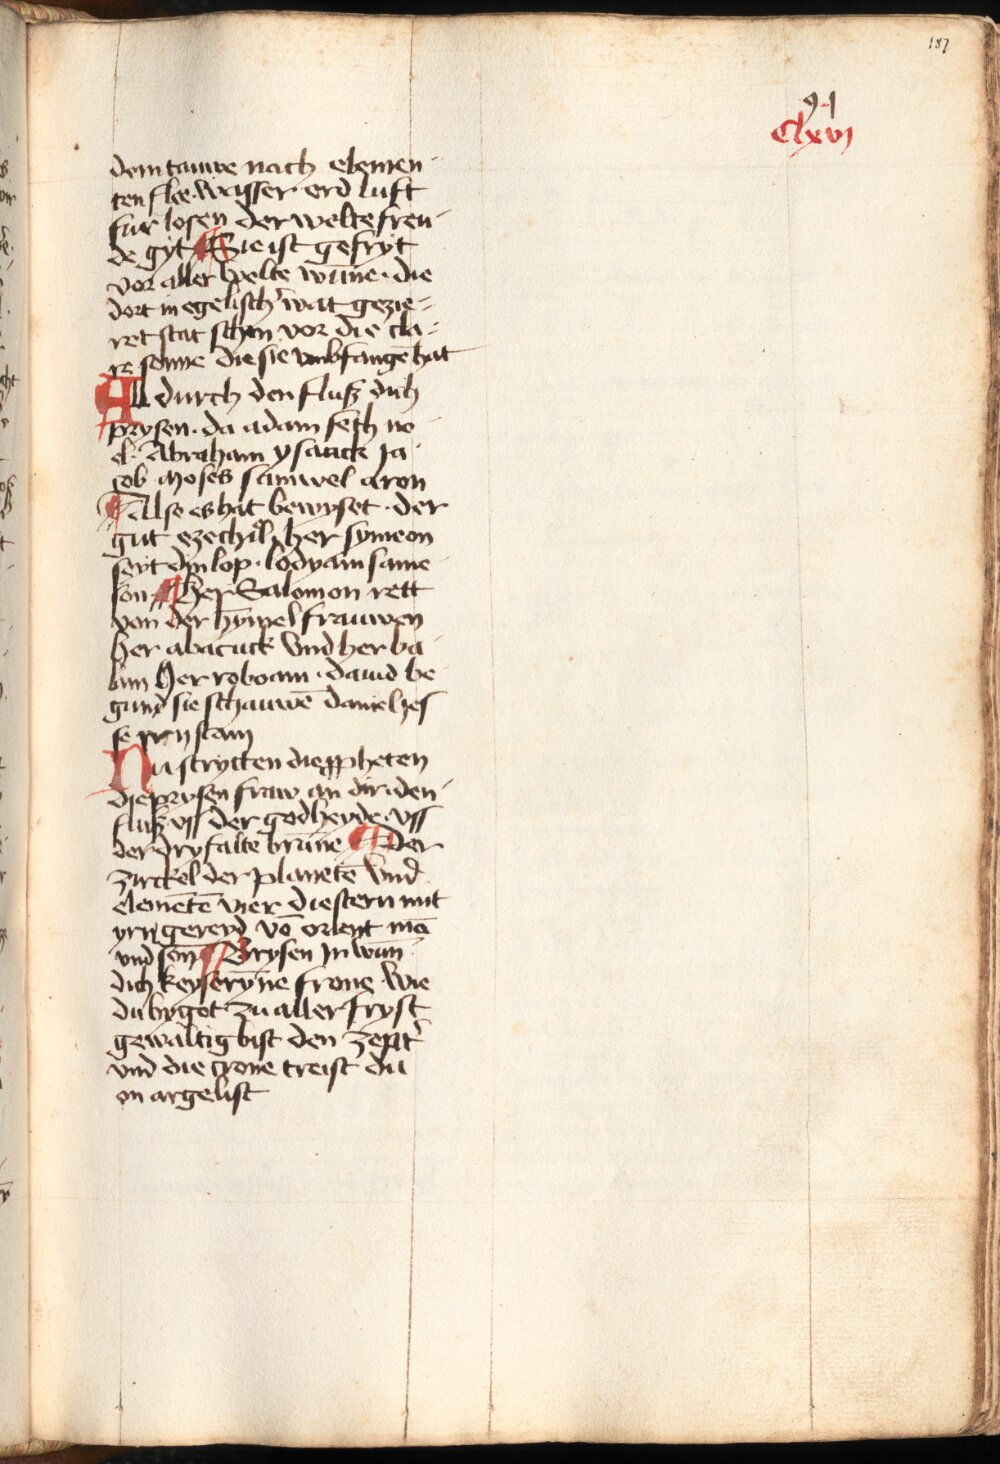 187
91
Clxvj
dem tauwe nach elemen-
ten flee. wasser erd luft
fur losen der welte freu-
de gyt Sie ist gefryt
vor aller welte wūne. die
dort in egelisch' wat gezie-
ret stat schon vor die cla-
re sonne die sie vmbfangē hat
All durch den fluß dich
prysen. da adam seth no
e. Abraham ysaack Ja
cob moses samwel aron
Also es hat bewyset. der
gut ezechiel her symeon
seit din lop. lodyam same
son Her Salomon rett
von der hȳmel frauwen
her abacuck vnd her ba
lam Her roboam. dauid be
gund sie schauwē daniel yes
se stam
Nu strytten die ppheten
die prysen fraw an dir. den
fluß vss der godheyde. vss
der dryfalte brūne Der
zirckel der planetē vnd
elemētē vier die stern mit
yrn gereyd vō orient mā
vnd son Prysen in wūn
dich keyserȳne frone wie
du by got zu aller fryst
gewaltig bist den zept'
vnd die crone treist du
on argelist